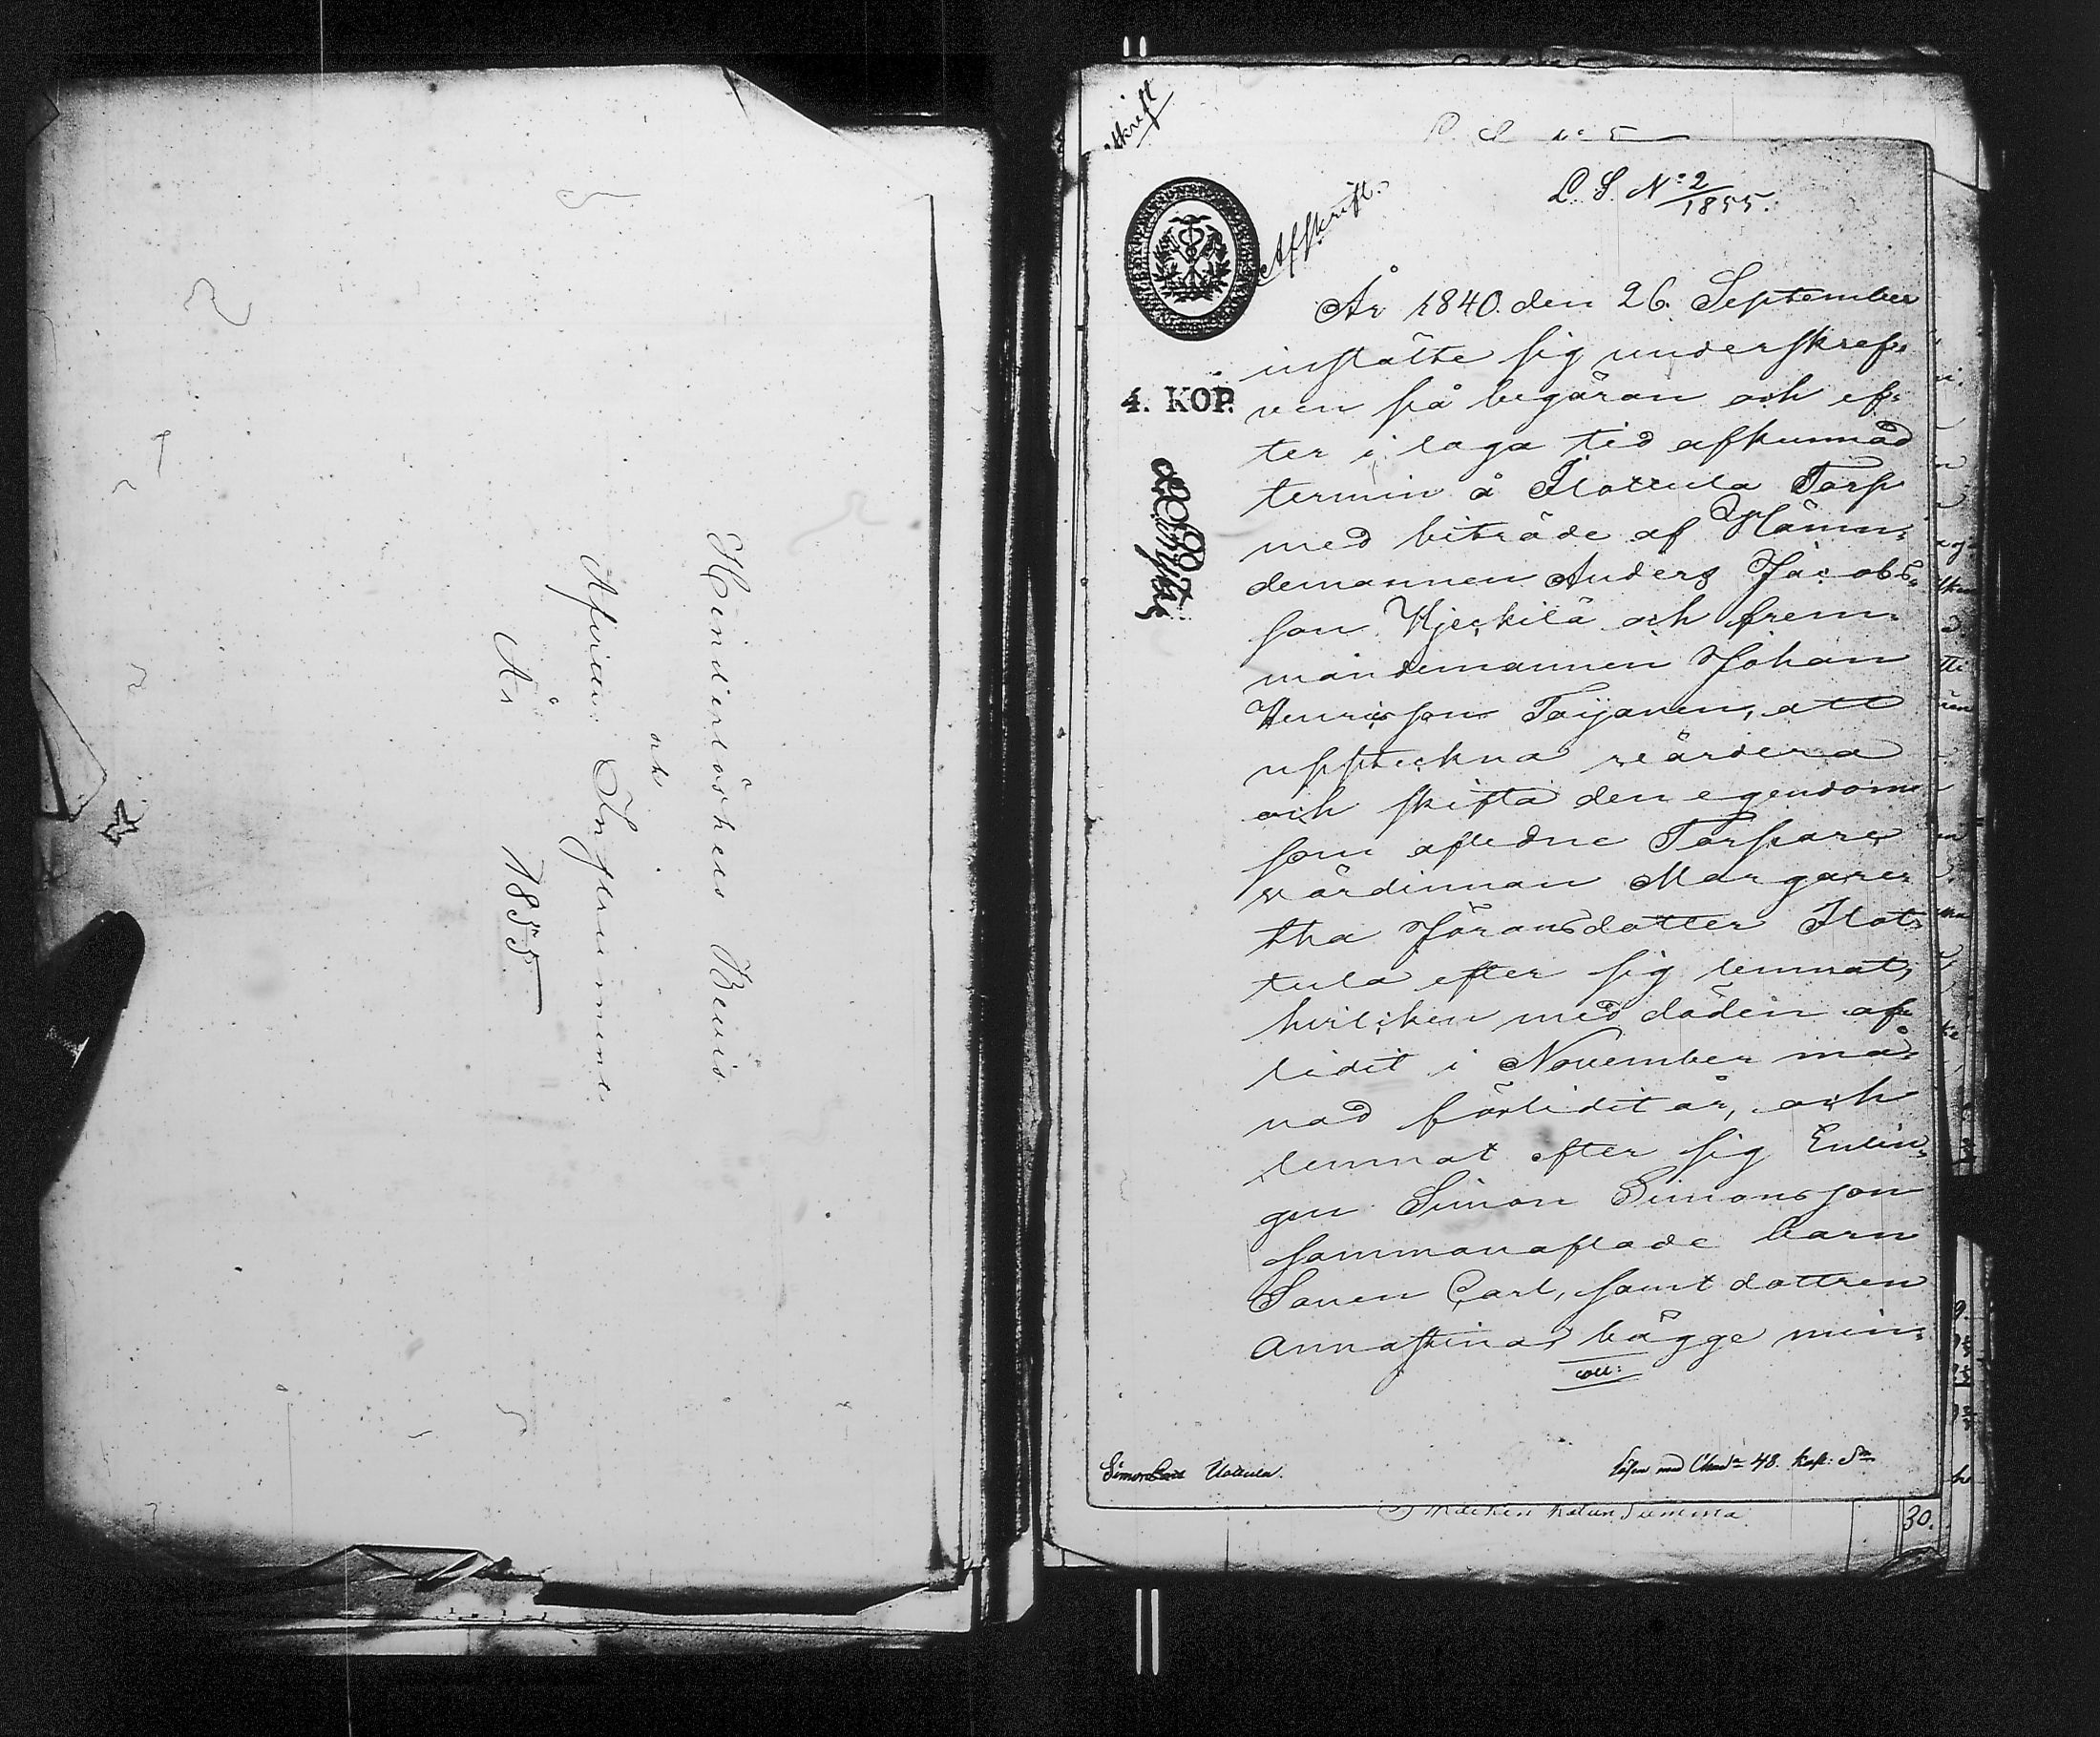 Hinderlöshets Bewis
och
Afvittr. Instrument
År 1855
Afskrift.
L. S. Nº 2/1855.
4. KOP.
År 1840. den 26. September
inställte sig underskref-
ven på begäran och ef-
ter i laga tid afkunnad
termin å Ilottula Torp
med biträde af Nämn-
demannen Anders Jacobs-
son Kjeckilä och frem-
mandemannen Johan
Henricsson Toijanen, att
uppteckna värdera
och skifta den egendom
som aflidne Torpare
värdinnan Margare-
tha Jöransdotter Ilot-
tula efter sig lemnat,
hvilcken med döden af-
lidit i November må-
nad förlidit år, och
lemnat efter sig Enlin-
gen Simon Simonsson
sammanaflade barn
Sonen Carl, samt dottren
Annastina, bägge min-
coll:
Lösen med 48. kop. Sr
30.